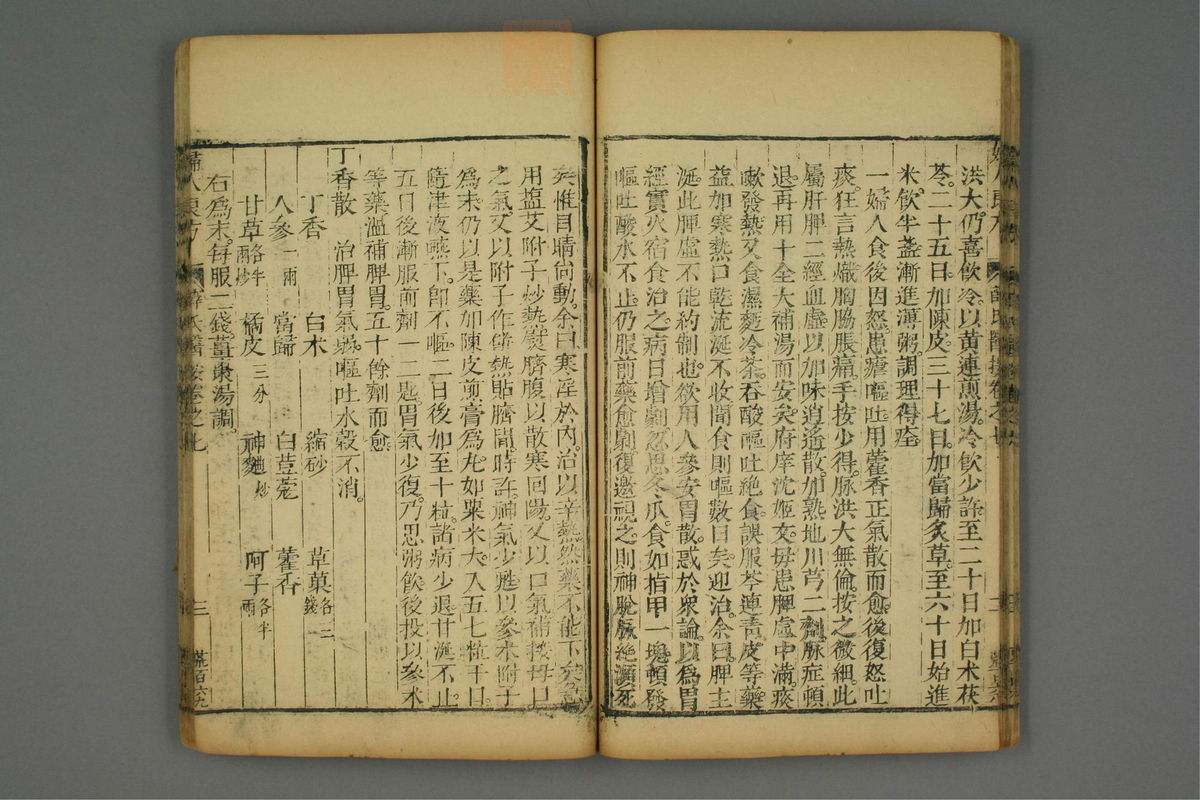 洪大。仍喜飲冷。以黃連煎湯。冷飲少許。至二十日加白朮茯
苓。二十五日。加陳皮。三十七日。加當歸炙草。至六十日始進
米飲半盞。漸進薄粥。調理得痊。
一婦人食後因怒。患瘧嘔吐。用藿香正氣散而愈。後復怒吐
痰。狂言熱熾。胸脇脹痛。手按少得。脉洪大無倫。按之微細。此
屬肝脾二經血虛。以加味逍遙散。加熟地川芎。二劑脉症頓
退。再用十全大補湯而安矣。府庠沈姬文母患脾虛中滿。痰
嗽發熱。又食濕麪冷茶。吞酸嘔吐絶食。誤服芩連青皮等藥。
益加寒熱口乾。流涎不收。聞食則嘔數日矣。迎治。余曰。脾主
涎此脾虛不能約制也。欲用人參安胃散。惑於衆論。以爲胃
經實火宿食治之。病日增劇。忽思冬瓜。食如指甲一塊。頓發
嘔吐酸水不止。仍服前藥愈劇。復邀視之。則神脫脈絶瀕死
矣。惟目睛尙動。余曰。寒淫於內。治以辛熱。然藥不能下矣。急
用盐艾附子炒熱熨臍腹。以散寒回陽。又以口氣補接母口
之氣。又以附子作餅熱貼臍間。時許。神氣少甦。以參朮附子
爲末。仍以是藥加陳皮煎膏爲丸。如粟米大。入五七粒于口。
隨津液嚥下。卽不嘔。二日後加至十粒。諸病少退。甘涎不止
五日後漸服前劑一二匙。胃氣少復。乃思粥飲。後投以參朮
等藥。溫補脾胃。五十餘劑而愈。
丁香散　治脾胃氣弱。嘔吐水穀不消。
丁香　白朮　縮砂　草菓各三錢
人參一兩　當歸　白荳蔻　藿香
甘草各半兩炒　橘皮三分　神麯炒　訶子各半兩
右爲末。每服二錢。薑棗湯調。
婦人良方　薛氏醫按卷之七　三